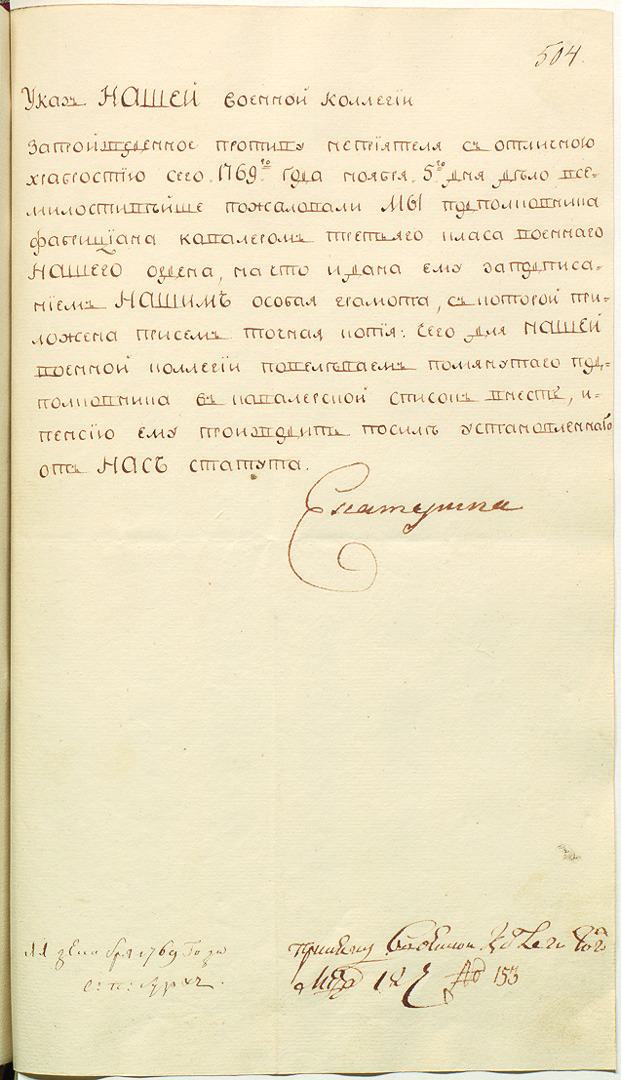 504.
Указъ НАШЕЙ военной коллегіи
Запройзведенное противу непріятеля съ отличною
храбростію сего 1769го года ноября 5го дня дѣло все-
милостивѣйше пожаловали МЫ подполковника
фабриціана кавалеромъ третьяго класа военнаго
НАШЕГО ордена, на что и дана ему заподписа-
ніемъ НАШИМЪ особая грамота, съ которой при-
ложена присемъ точная копія: Сего для НАШЕЙ
военной коллегіи повелѣваемъ помянутаго под-
полковника въ кавалерской списокъ внесть, и-
пенсію ему производить посилѣ установленнаго
отъ НАСЪ статута.
Екатерина
декабря 1769 Года
153